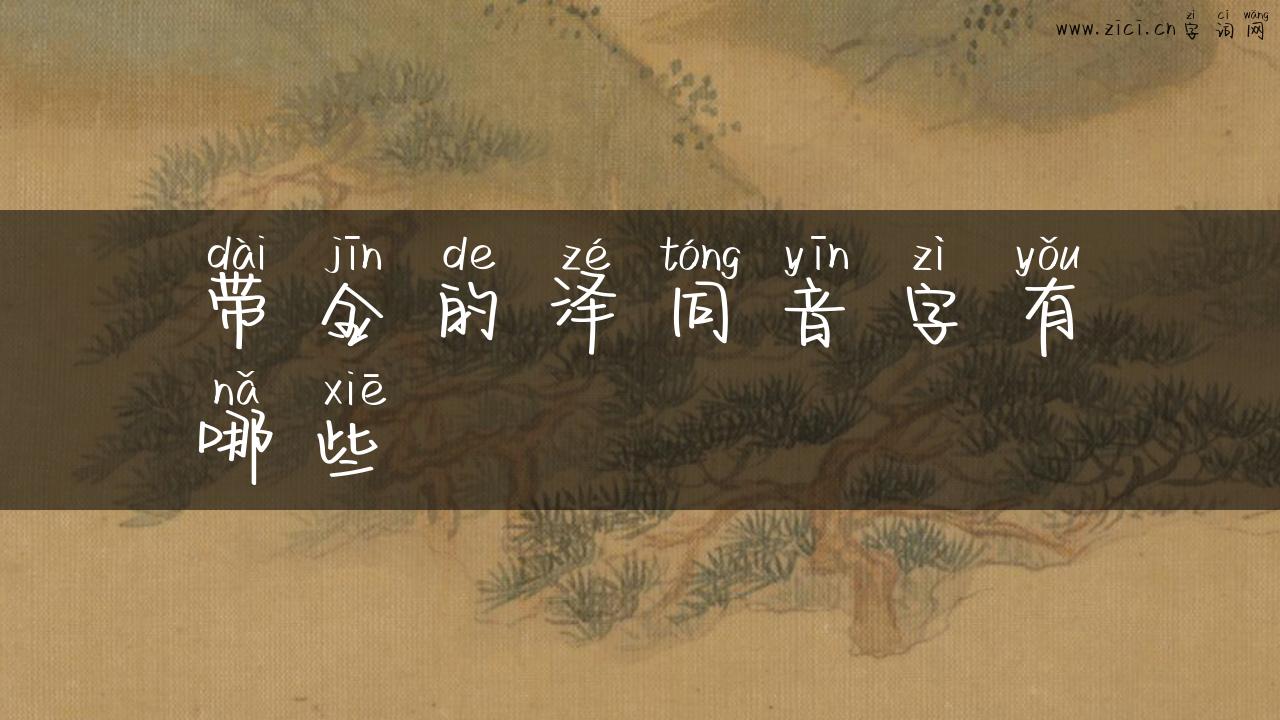 zì cí wǎng
www.zici.cn 字词网
dài jīn de zé tóng yīn zì yǒu
带金的泽同音字有
nǎ xiē
哪些